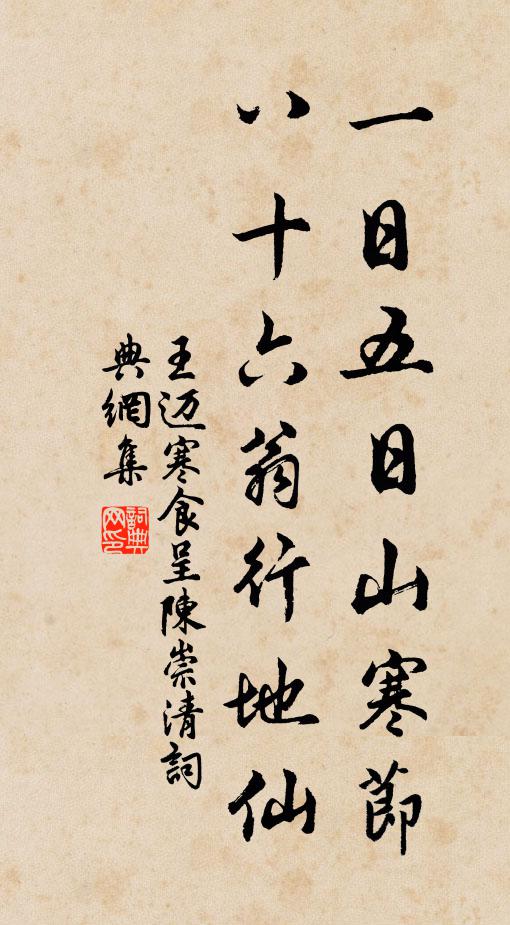 一日五日山寒節
八十六翁行地仙
王迈寒食呈陳崇清詞
典網集
詞典網印